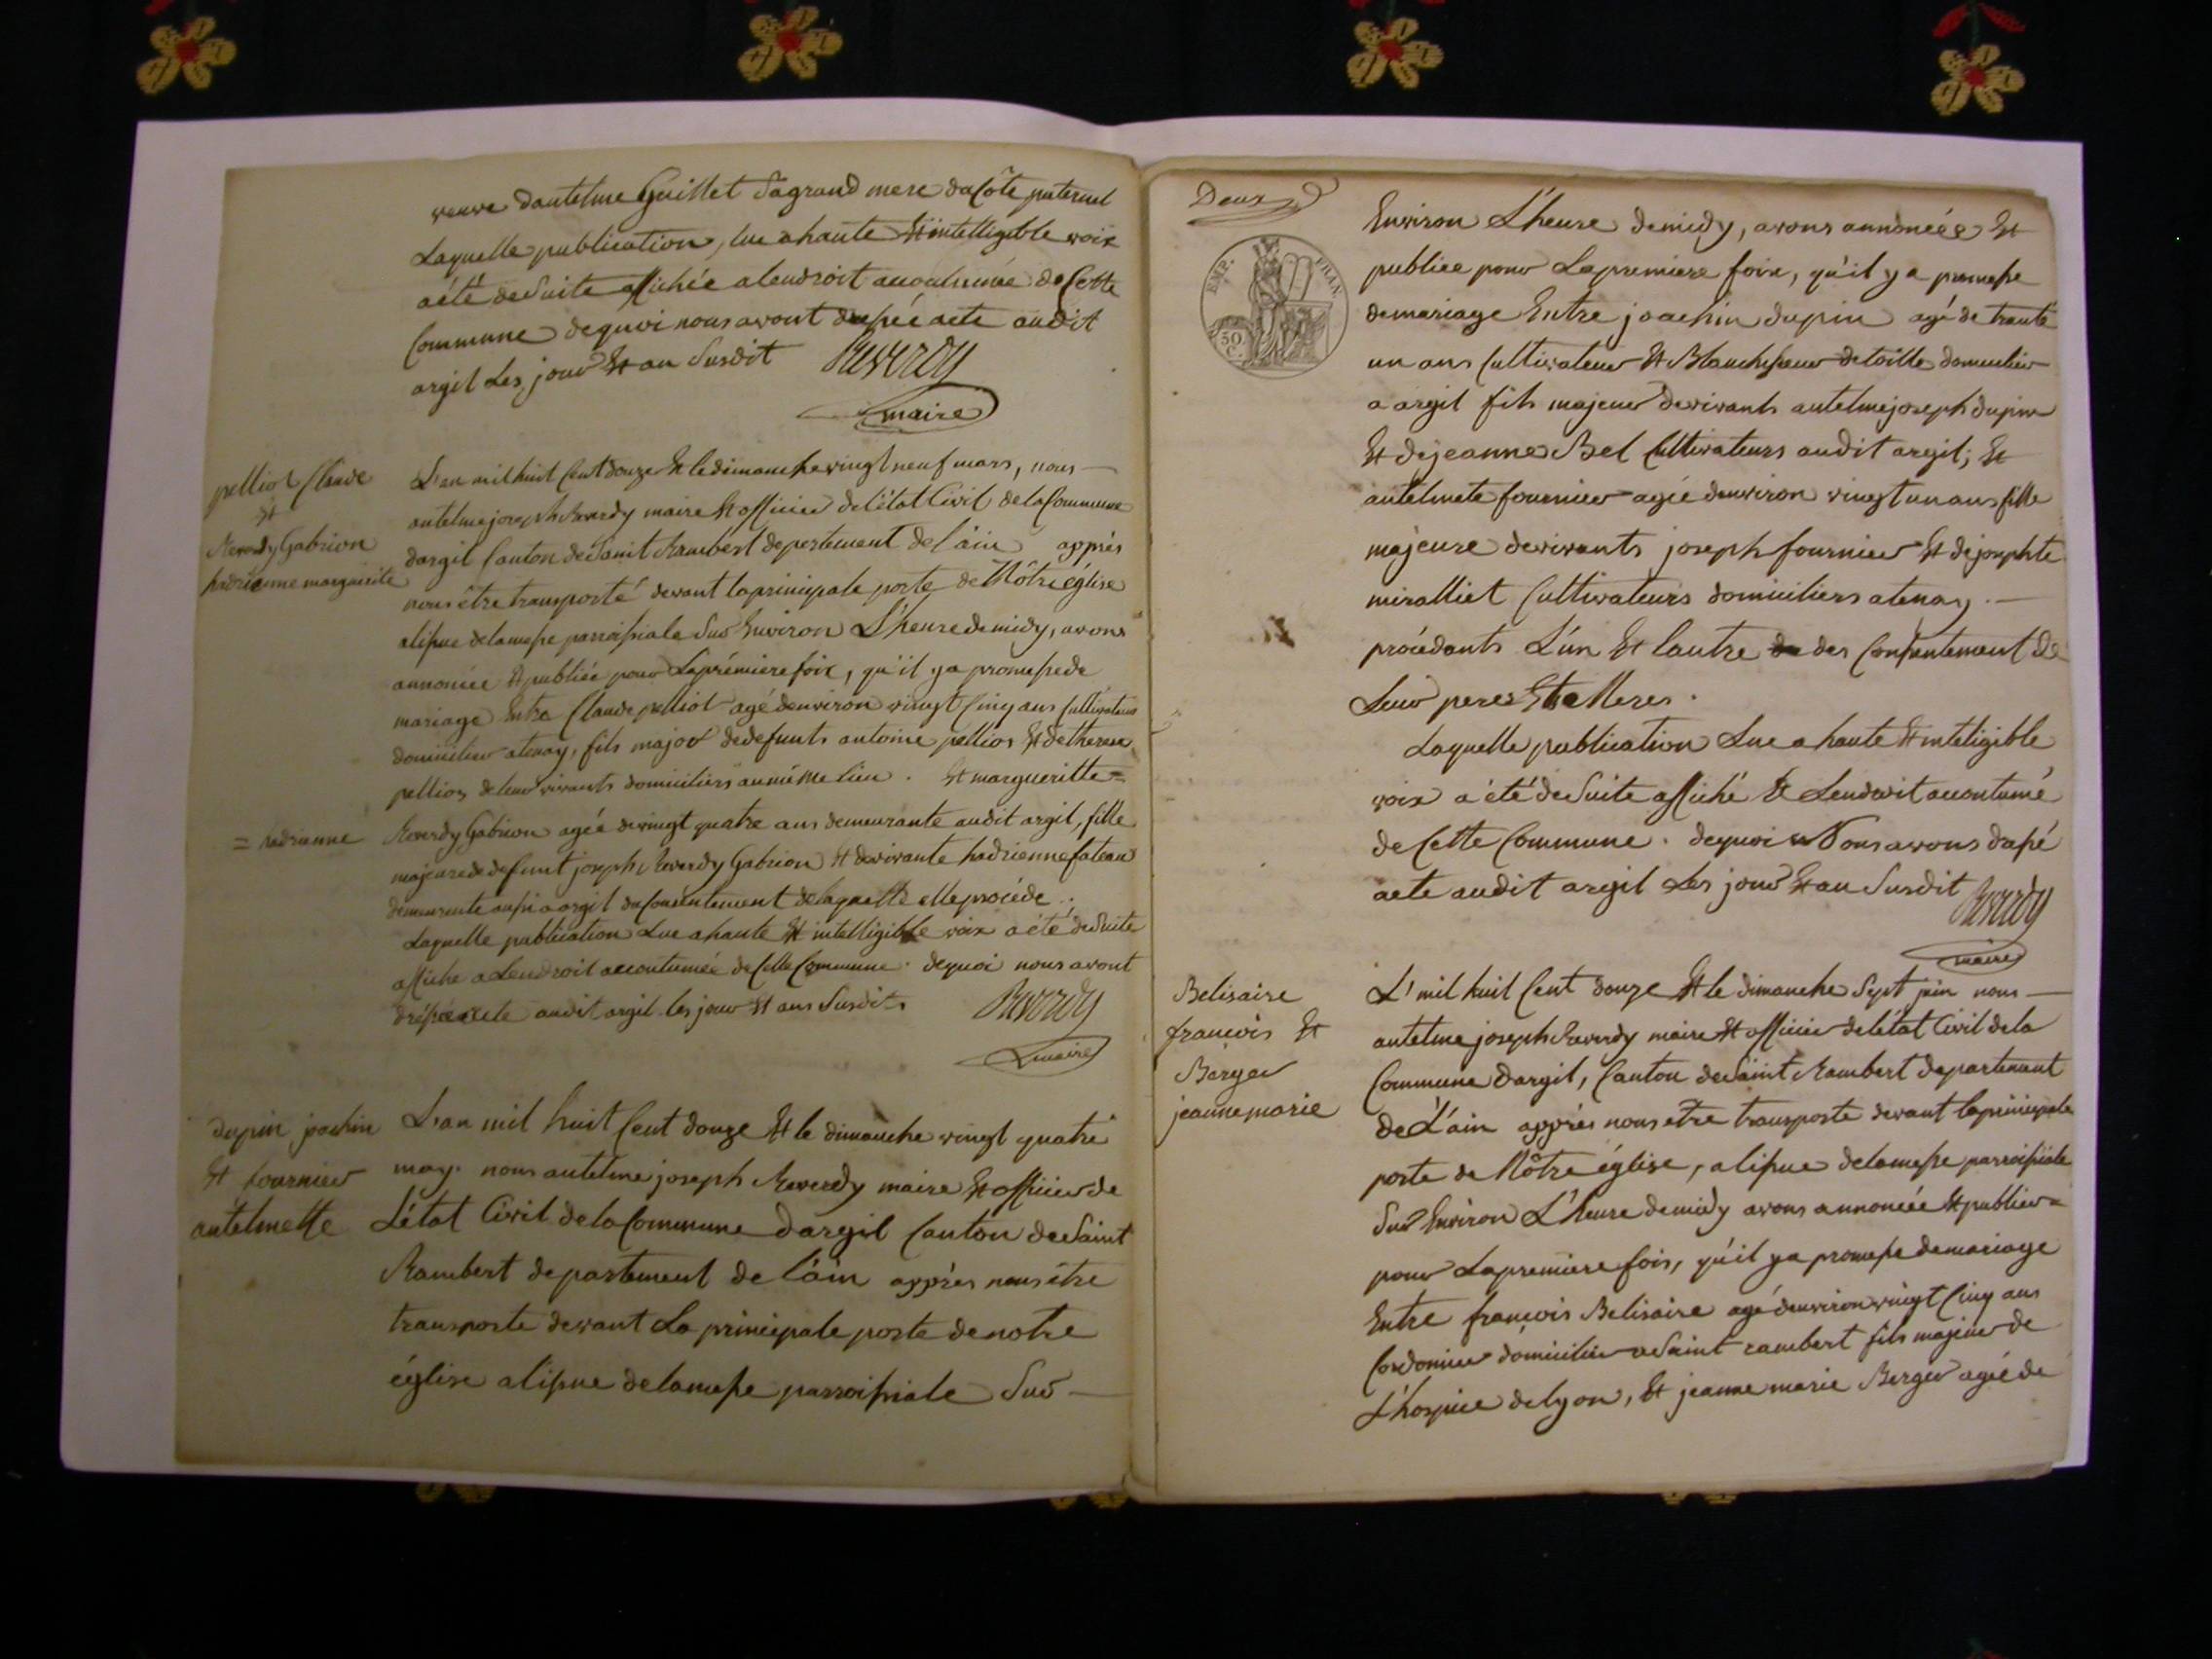 veuve dantelme Guillet Sagrand mere du Côte paternel
Laquelle publication, lue a haute Et intelligible voix
a été de Suite affichée a lendroit accoutumée de Cette
Commune de quoi nous avont dressée acte audit
argil Les jour Et an Susdit Reverdy
maire
pelliot Claude
Et
Reverdy Gabrion
hadrianne marguerite
L'an mil huit Cent douze Et le dimanche vingt neuf mars, nous
antelme joseph Reverdy maire Et officier de l'état Civil de la Commune
dargil Canton de Saint Rambert departement de l'ain apprès
nous être transporté devant la principale porte de Nôtre église
alissue de la messe parroissiale Sur Environ L'heure de midy, avons
annoncée Et publiée pour La prémiere foix, qu'il ya promesse de
mariage Entre Claude pelliot agé denviron vingt Cinq ans Cultivateur
domicilier atenay, fils major de defunts antoine pellion Et de therese
pellion de leur vivants domiciliers au même lieu. Et margueritte =
= hadrianne Reverdy Gabrion agée de vingt quatre ans demeurante audit argil, fille
majeure de defunt joseph Reverdy Gabrion Et de vivante hadrienne fateau
demeurente aussi a argil du Consentement de laquelle elle procéde.
Laquelle publication Lue a haute Et intelligible voix a été de Suite
affiche a Lendroit accoutumée de Cette Commune. dequoi nous avont
dréssée acte audit argil les jour Et ans Susdits Reverdy
maire
dupin joachin
Et fournier
antelmette
L'an mil huit Cent douze Et le dimanche vingt quatre
may. nous antelme joseph Reverdy maire Et officier de
L'état Civil de la Commune dargil Canton de Saint
Rambert departement de l'ain apprès nous être
transporte devant La principale porte de notre
église alissue de la messe parroissiale Sur
Deux
EMP. FRAN.
50 C.
Environ L'heure de midy, avons annoncée Et
publiee pour La premiere foix, qu'il y a promesse
de mariage Entre joachin dupin agé de trante
un ans Cultivateur Et Blanchisseur de toille domicilier
a argil fils majeur de vivants antelme joseph dupin
Et de jeanne Bel Cultivateurs audit argil; Et
antelmete fournier agée denviron vingt un ans fille
majeure de vivants joseph fournier Et de josephte
miralliet Cultivateurs domiciliers atenay.
procédants L'un Et lautre des Consentement de
Leur peres Et Meres.
Laquelle publication Lue a haute Et inteligible
voix a été de Suite affiché a Lendroit accoutumé
de Cette Commune. dequoi Nous avons dressé
acte audit argil Les jour Et an Susdit Reverdy
maire
Belisaire
francois Et
Berger
jeanne marie
L' mil huit Cent douze Et le dimanche Sept juin nous
antelme joseph Reverdy maire Et officier de l'état Civil de la
Commune dargil, Canton de Saint Rambert departement
de L'ain apprès nous etre transporte devant la principale
porte de Nôtre église, alissue de la messe parroissiale
Sur Environ L'heure de midy avons annoncée Et publier =
pour La premiere fois, qu'il ya promesse de mariage
Entre francois Belisaire agé denviron vingt Cinq ans
Cordonier domicilier a Saint rambert fils majeur de
L'hospice de lyon, Et jeanne marie Berger agée de